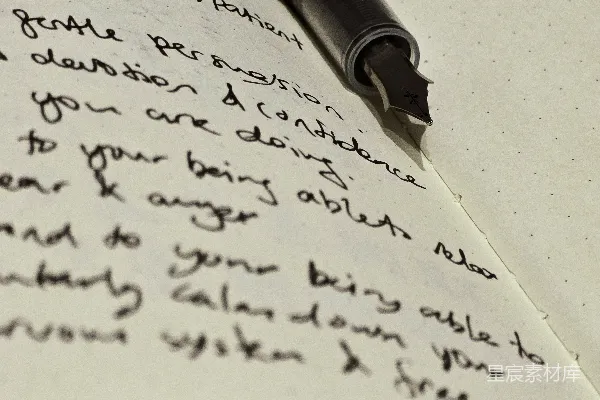 Patient
gentle persuasion.
devotion & confidence
you are doing.
to your being able to relax
ear & anger
and to your being able to
calm down your
nervous system & free
星宸素材库